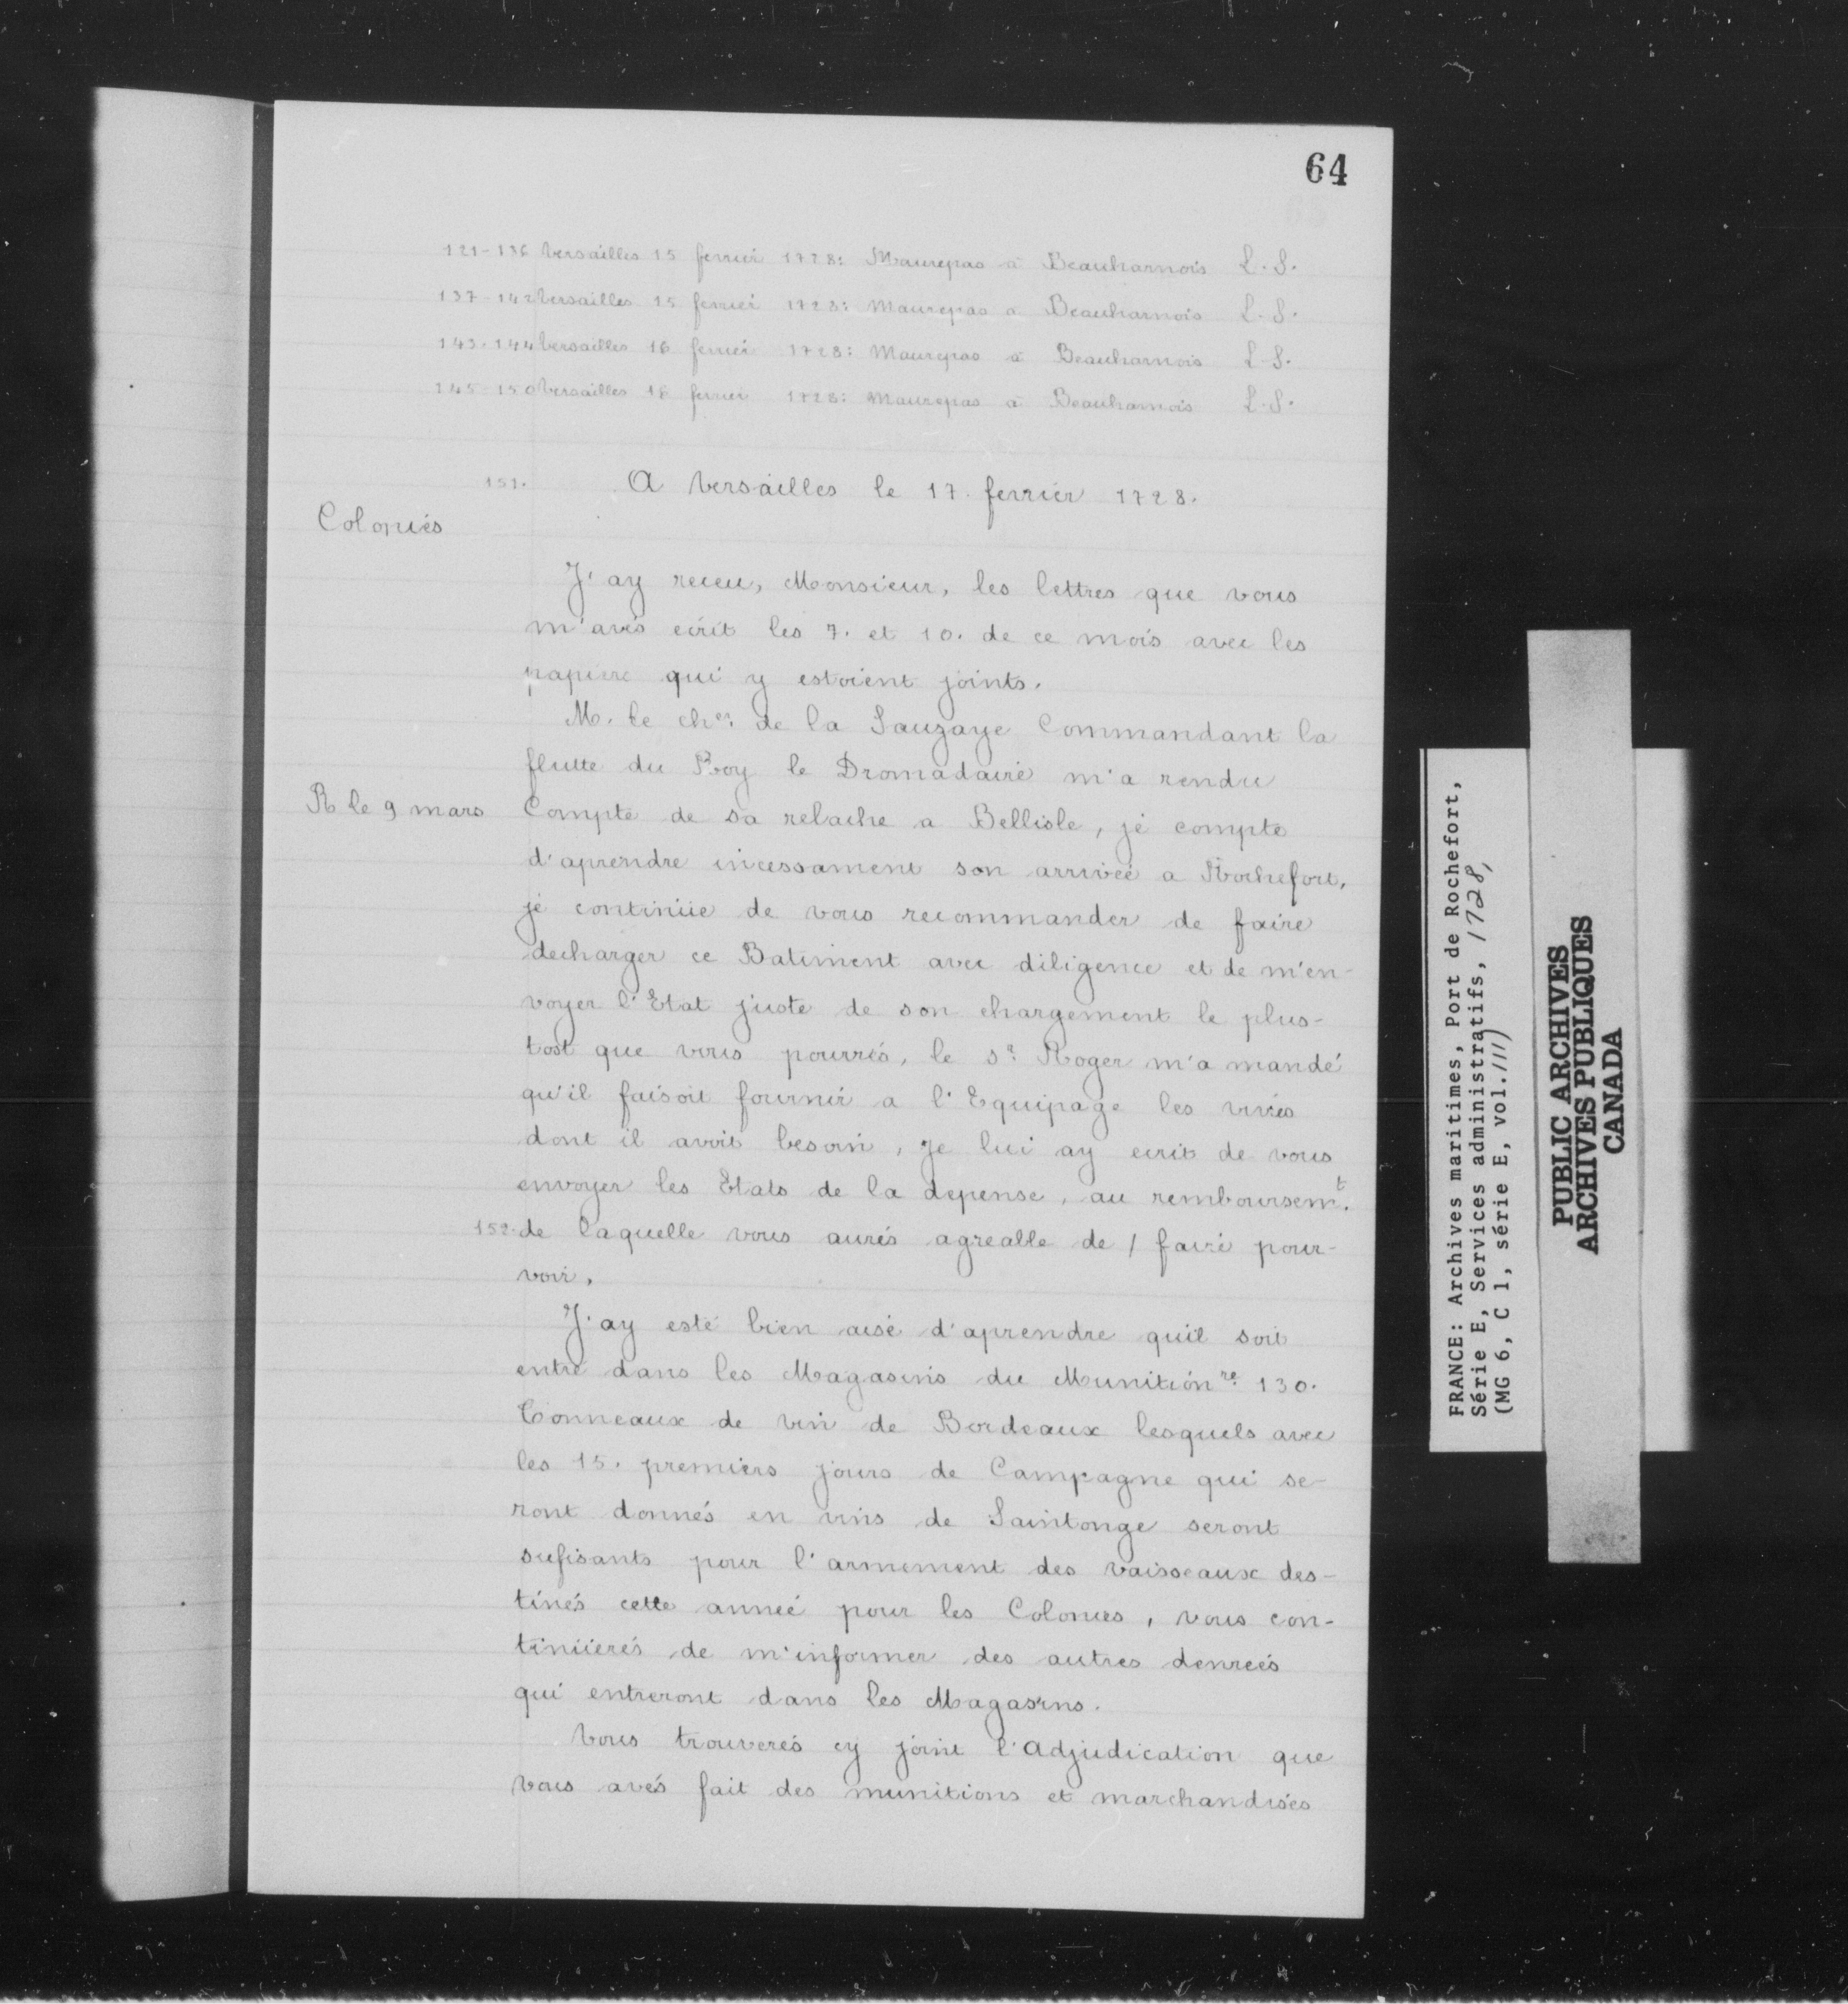 64
121-136 Versailles 15 fevrier 1728: Maurepas à Beauharnois L.S.
137-142 Versailles 15 fevrier 1728: Maurepas à Beauharnois L.S.
143-144 Versailles 16 fevrier 1728: Maurepas à Beauharnois L.S.
145-150 Versailles 16 fevrier 1728: Maurepas à Beauharnois L.S.
151. A Versailles le 17. fevrier 1728.
Colonies
J'ay receu, Monsieur, les lettres que vous
m'avés ecrit les 7. et 10. de ce mois avec les
papiers qui y estoient joints.
M. le cher. de la Sauzaye Commandant la
flutte du Roy le Dromadaire m'a rendu
R le 9 mars Compte de sa relache a Bellisle, je compte
d'aprendre incessament son arrivée a Rochefort,
je continüe de vous recommander de faire
decharger ce Batiment avec diligence et de m'en-
voyer l'Etat juste de son chargement le plus-
tost que vous pourrés, le sr. Roger m'a mandé
qu'il faisoit fournir a l'Equipage les vivres
dont il avoit besoin, je lui ay ecrit de vous
envoyer les Etats de la depense, au remboursemt.
152. de laquelle vous aurés agreable de / faire pour-
voir.
J'ay esté bien aisé d'aprendre quil soit
entré dans les Magasins du Munitionre. 130.
Tonneaux de vin de Bordeaux lesquels avec
les 15. premiers jours de Campagne qui se-
ront donnés en vins de Saintonge seront
sufisants pour l'armement des vaisseaux des-
tinés cette année pour les Colonies, vous con-
tinüerés de m'informer des autres denrées
qui entreront dans les Magasins.
Vous trouverés cy joint l'Adjudication que
vous avés fait des munitions et marchandises
FRANCE: Archives maritimes, Port de Rochefort,
Série E, Services administratifs, 1728,
(MG 6, C 1, série E, vol. 111)
PUBLIC ARCHIVES
ARCHIVES PUBLIQUES
CANADA